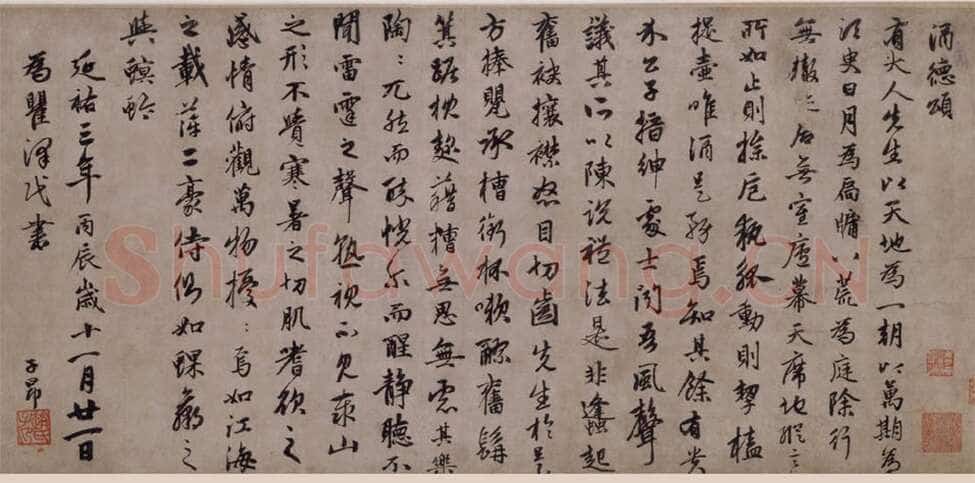 酒德頌
有大人先生以天地為一朝以萬期為
須臾日月為扃牖八荒為庭除行
無轍迹居無室廬幕天席地縱意
所如止則操卮執觚動則挈榼
提壺唯酒是務焉知其餘有貴
介公子搢紳處士聞吾風聲
議其所以陳說禮法是非蠭起
奮袂攘襟怒目切齒先生於是
方捧甖承槽銜杯嗽醪奮髯
箕踞枕麴藉糟無思無慮其樂
陶〻兀然而醉恍尔而醒靜聽不
聞雷霆之聲孰視不見泰山
之形不覺寒暑之切肌耆欲之
感情俯觀萬物擾〻焉如江海
之載萍二豪侍側如蜾蠃之
與螟蛉
延祐三年丙辰歲十一月廿一日
為瞿澤民書
子昂
Shufawang.CN